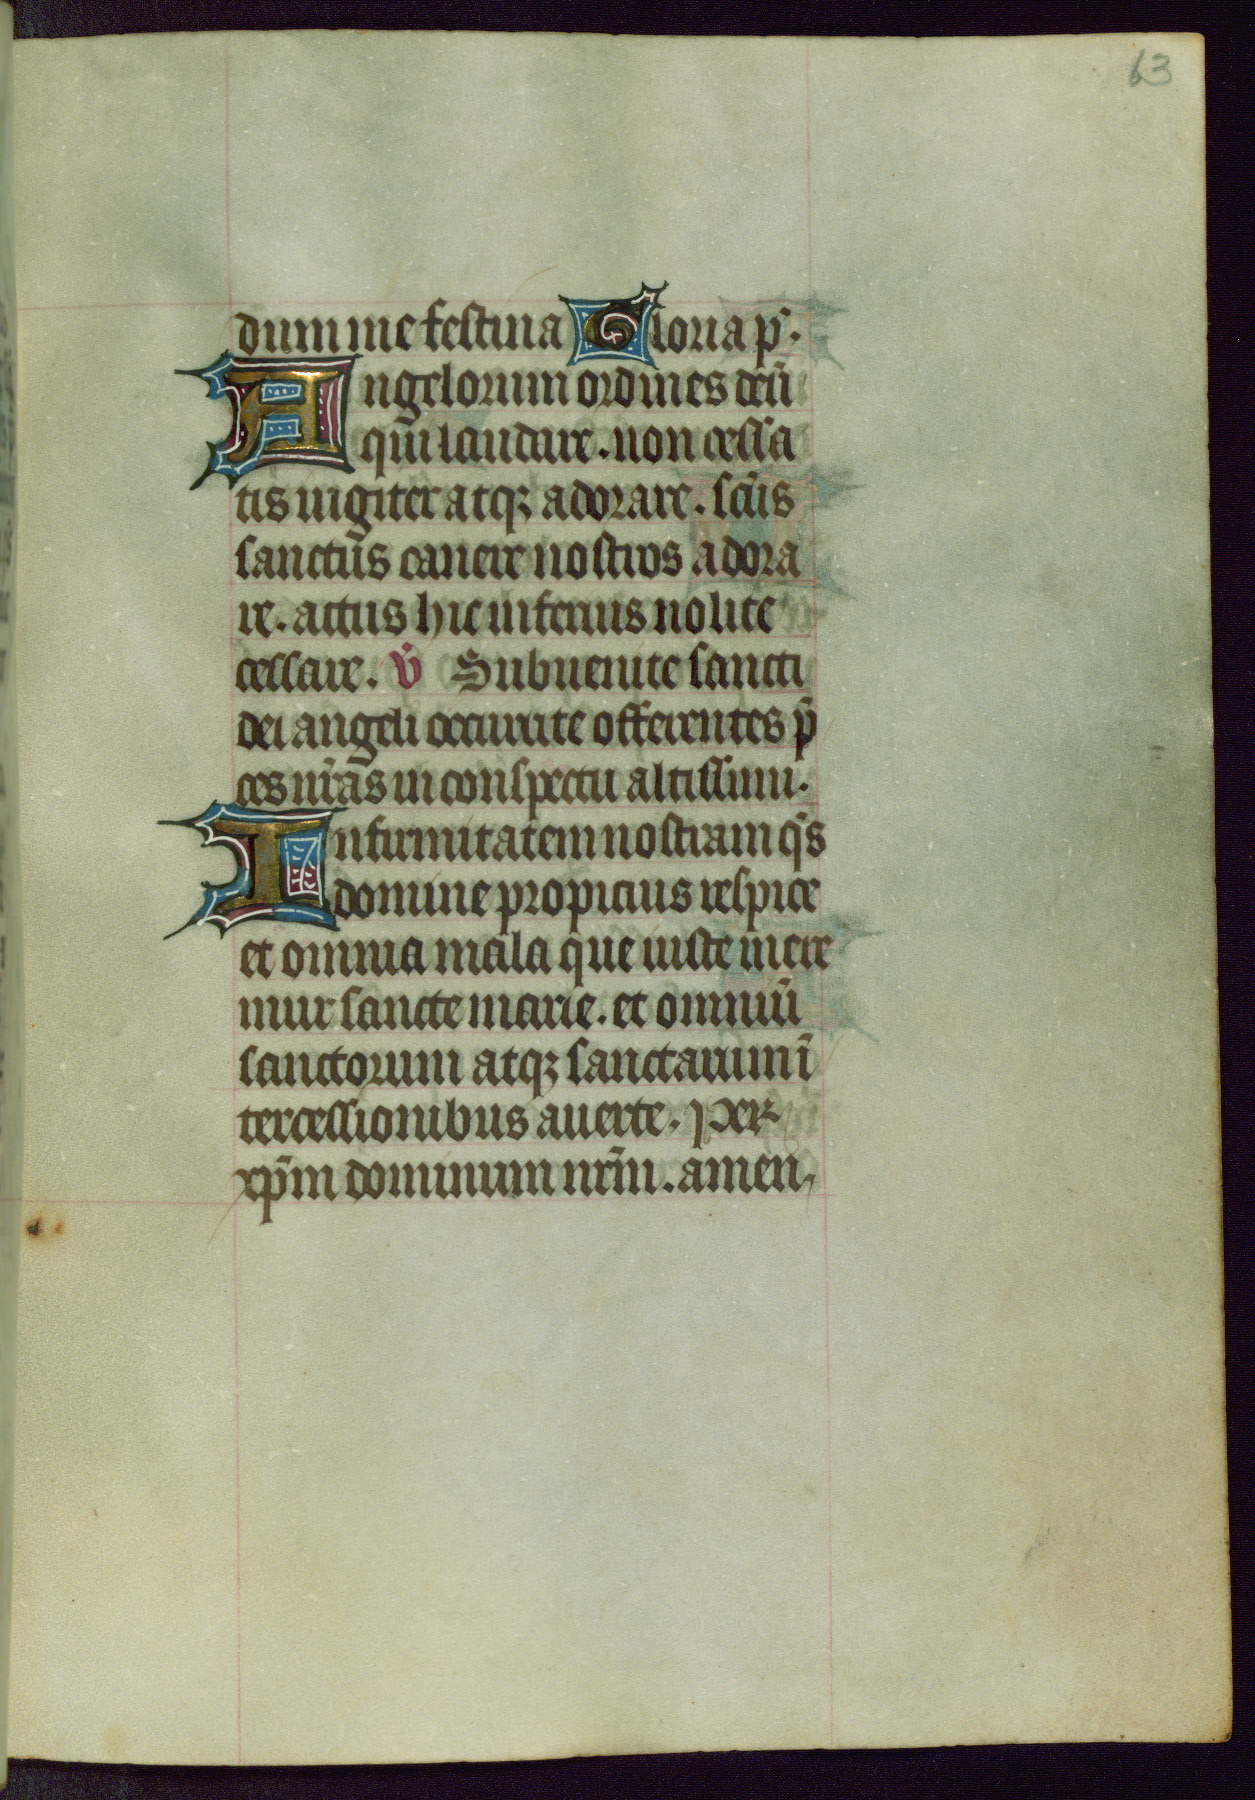 63
dum me festina Gloria pr̄.
Angelorum ordines deū
qui laudare. non cessa
tis iugiter atqꝫ adorare. scūs
sanctus canere nostros adora
re. actus hic inferius nolite
cessare. v̇ Subuenite sancti
dei angeli occurrite offerentes p̄
ces nr̄as in conspectu altissimi.
Infirmitatem nostram qs̄
domine propicius respice
et omnia mala que iuste mere
mur sancte marie. et omniū
sanctorum atqꝫ sanctarum ī
tercessionibus auerte. Per
xp̄m dominum nr̄m. amen,